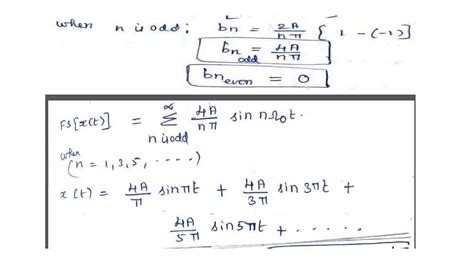 when n is odd: bn = 2A/nπ { 1 - (-1)}
bn odd = 4A/nπ
bn even = 0
FS[x(t)] = ∞ Σ n is odd 4A/nπ sin nΩ₀t.
when (n = 1,3,5, ·····)
x(t) = 4A/π sinπt + 4A/3π sin 3πt +
4A/5π sin5πt + ······